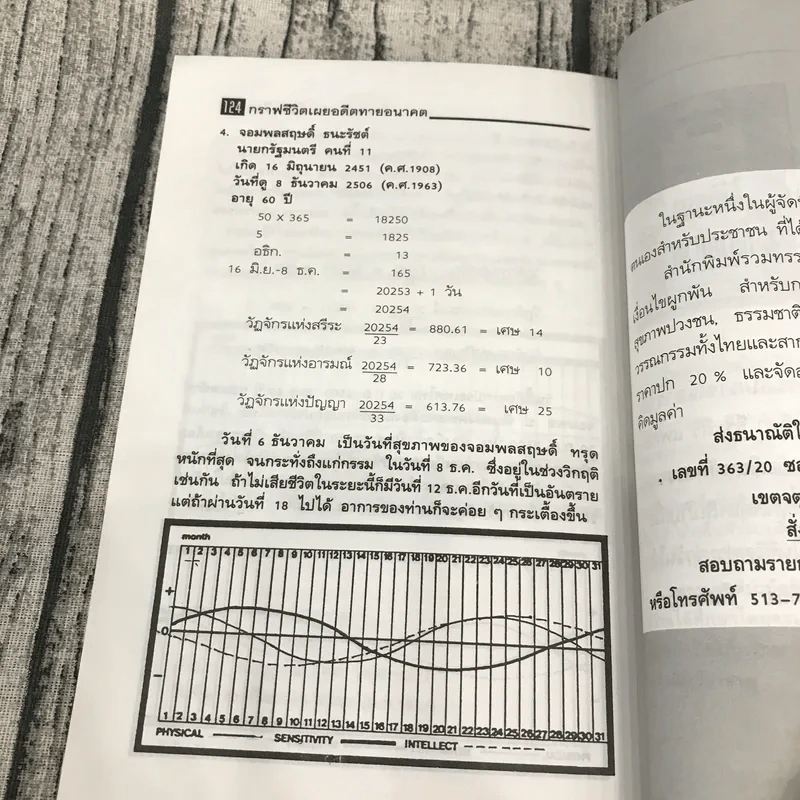 124 กราฟชีวิตเผยอดีตทายอนาคต
4. จอมพลสฤษดิ์ ธนะรัชต์
นายกรัฐมนตรี คนที่ 11
เกิด 16 มิถุนายน 2451 (ค.ศ.1908)
วันที่ดู 8 ธันวาคม 2506 (ค.ศ.1963)
อายุ 60 ปี
50 X 365 = 18250
5 = 1825
อธิก. = 13
16 มิ.ย.-8 ธ.ค. = 165
= 20253 + 1 วัน
= 20254
วัฏจักรแห่งสรีระ 20254 = 880.61 = เศษ 14
23
วัฏจักรแห่งอารมณ์ 20254 = 723.36 = เศษ 10
28
วัฏจักรแห่งปัญญา 20254 = 613.76 = เศษ 25
33
วันที่ 6 ธันวาคม เป็นวันที่สุขภาพของจอมพลสฤษดิ์ ทรุด
หนักที่สุด จนกระทั่งถึงแก่กรรม ในวันที่ 8 ธ.ค. ซึ่งอยู่ในช่วงวิกฤติ
เช่นกัน ถ้าไม่เสียชีวิตในระยะนี้ก็มีวันที่ 12 ธ.ค.อีกวันที่เป็นอันตราย
แต่ถ้าผ่านวันที่ 18 ไปได้ อาการของท่านก็จะค่อย ๆ กระเตื้องขึ้น
month
1 2 3 4 5 6 7 8 9 10 11 12 13 14 15 16 17 18 19 20 21 22 23 24 25 26 27 28 29 30 31
+
0
−
1 2 3 4 5 6 7 8 9 10 11 12 13 14 15 16 17 18 19 20 21 22 23 24 25 26 27 28 29 30 31
PHYSICAL SENSITIVITY INTELLECT
ในฐานะหนึ่งในผู้จัด
ตนเองสำหรับประชาชน ที่ได้
สำนักพิมพ์รวมทรร
เงื่อนไขผูกพัน สำหรับก
สุขภาพปวงชน, ธรรมชาติ
วรรณกรรมทั้งไทยและสาก
ราคาปก 20 % และจัดส
คิดมูลค่า
ส่งธนาณัติใ
เลขที่ 363/20 ซอ
เขตจต
สั่
สอบถามราย
หรือโทรศัพท์ 513-7